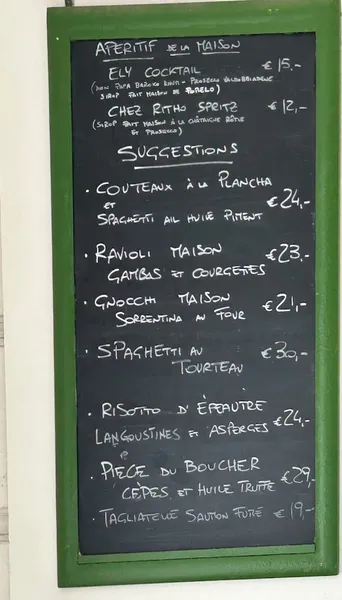 APERITIF DE LA MAISON
ELY COCKTAIL €15,-
(DON PAPA BAROKO RHUM - PROSECCO VALDOBBIADENE
SIROP FAIT MAISON DE
CHEZ RITHO SPRITZ €12,-
(SIROP FAIT MAISON À LA CHÂTAIGNE RÔTIE
ET PROSECCO)
SUGGESTIONS
• COUTEAUX À LA PLANCHA
ET €24,-
SPAGHETTI AIL HUILE PIMENT
• RAVIOLI MAISON €23,-
GAMBAS ET COURGETTES
• GNOCCHI MAISON €21,-
SORRENTINA AU FOUR
• SPAGHETTI AU €30,-
TOURTEAU
• RISOTTO D'ÉPEAUTRE €24,-
LANGOUSTINES ET ASPERGES
• PIECE DU BOUCHER €29,-
CÈPES ET HUILE TRUFFE
• TAGLIATELLE SAUMON FUMÉ €19,-